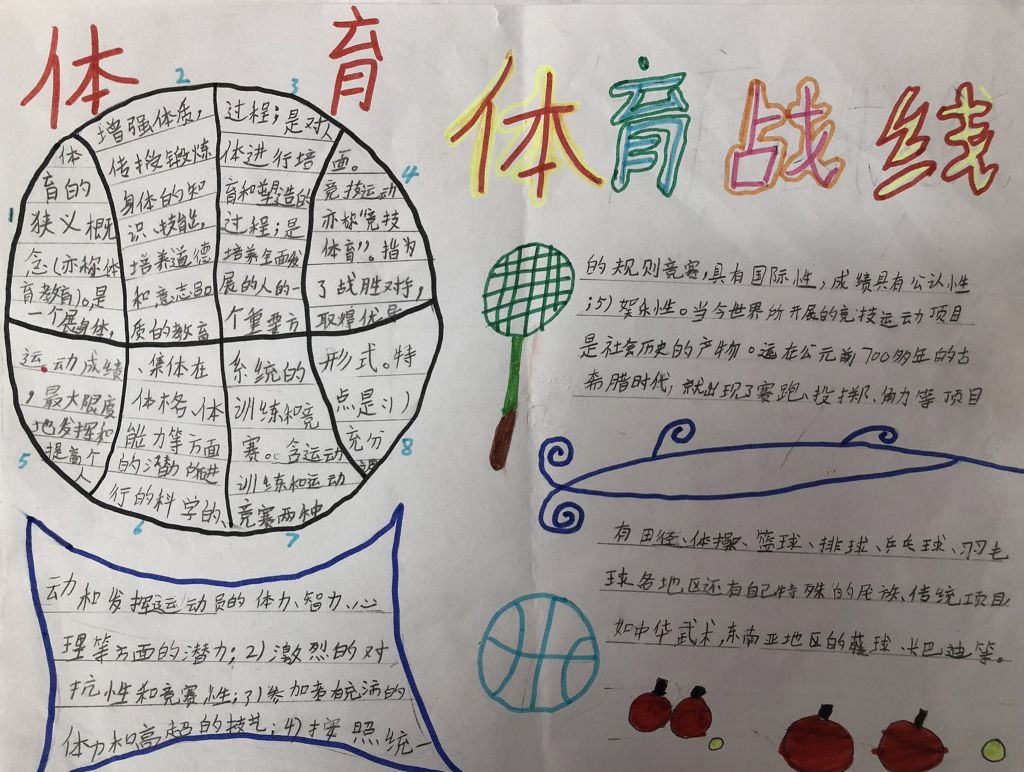 体育
体育战线
1
体
育的
狭义概
念(亦称体
育教育)。是
一个展身体,
2
增强体质,
传授锻炼
身体的知
识、技能,
培养道德
和意志品
质的教育
3
过程;是对人
体进行培
育和塑造的
过程;是
培养全面发
展的人的一
个重要方
4
面。
竞技运动
亦称“竞技
体育”。指为
了战胜对手,
取得优异
5
运、动成绩
,最大限度
地发挥和
提高个
人
6
、集体在
体格、体
能力等方面
的潜力
行的科学的、
7
系统的
训练和竞
赛。含运动
训练和运动
竞赛两种
8
形式。特
点是:1)
充分
动和发挥运动员的体力、智力、心
理等方面的潜力;2)激烈的对
抗性和竞赛性;3)参加者有充沛的
体力和高超的技艺;4)按照统一
的规则竞赛,具有国际性,成绩具有公认性
;5)娱乐性。当今世界所开展的竞技运动项目
是社会历史的产物。远在公元前700多年的古
希腊时代,就出现了赛跑、投掷、角力等项目
有田径、体操、篮球、排球、乒乓球、羽毛
球各地区还有自己特殊的民族、传统项目
如中华武术,东南亚地区的藤球、卡巴迪等。